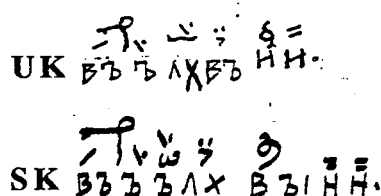 UK ВЪ Ъ ЛХВЪ НН.
SK ВЪ Ъ Ъ Л Х В ЪІ Н Н.